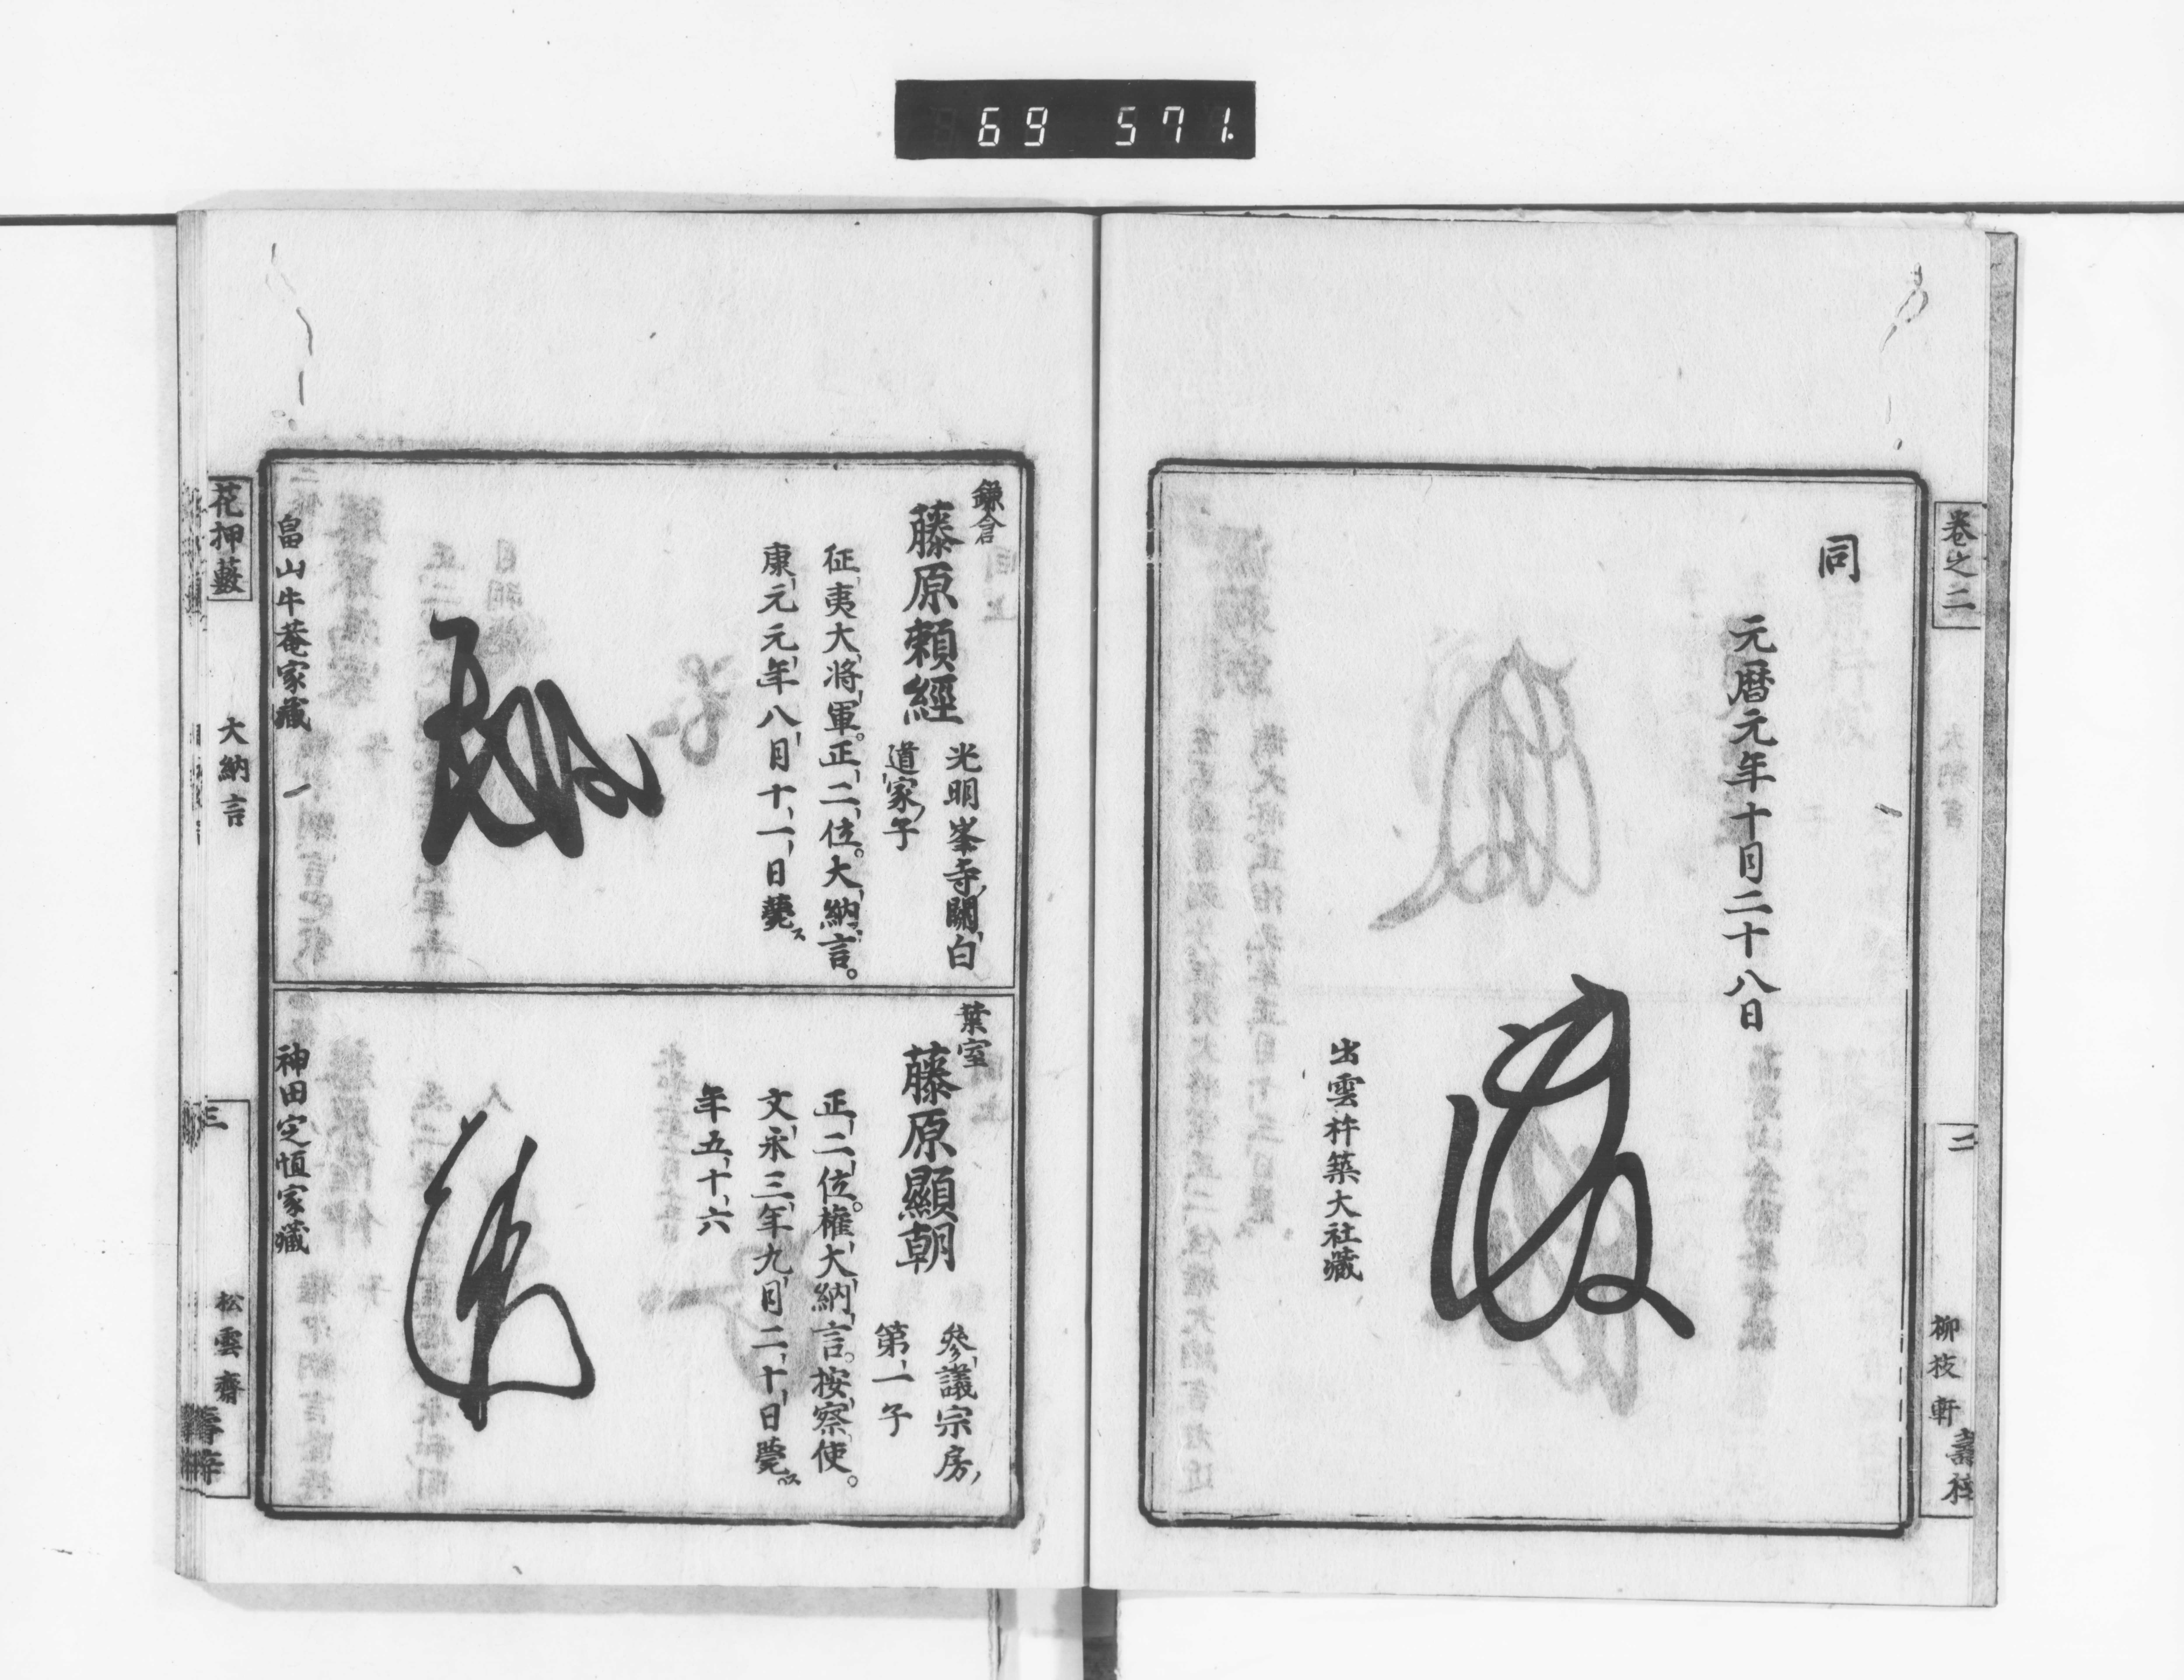 69 571.
卷之二
二
柳枝軒
同
元暦元年十月二十八日
出雲杵築大社藏
鎌倉
藤原頼經
光明峯寺關白
道家子
征夷大將軍。正二位。大納言。
康元元年八月十一日薨ス
畠山牛菴家藏
葉室
藤原顯朝
參議宗房
第一子
正二位。權大納言。按察使。
文永三年九月二十日薨ス
年五十六
神田定恒家藏
花押藪
大納言
三
松雲齋